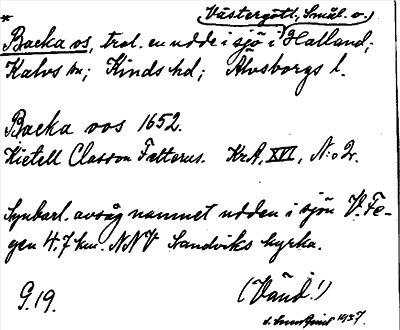 * Västergötl., Smål. o.)
Backa os, trol. en udde i sjö i Halland;
Kalvs sn; Kinds hd; Älvsborgs l.
Backa oos 1652.
Kietell Classon Felterus. KrA, XVI, N:o 2.
Synbarl. avsåg namnet udden i sjön V. Fe-
gen 4.7 km. NNV Sandviks kyrka.
G. 19. (Vänd!)
1937.